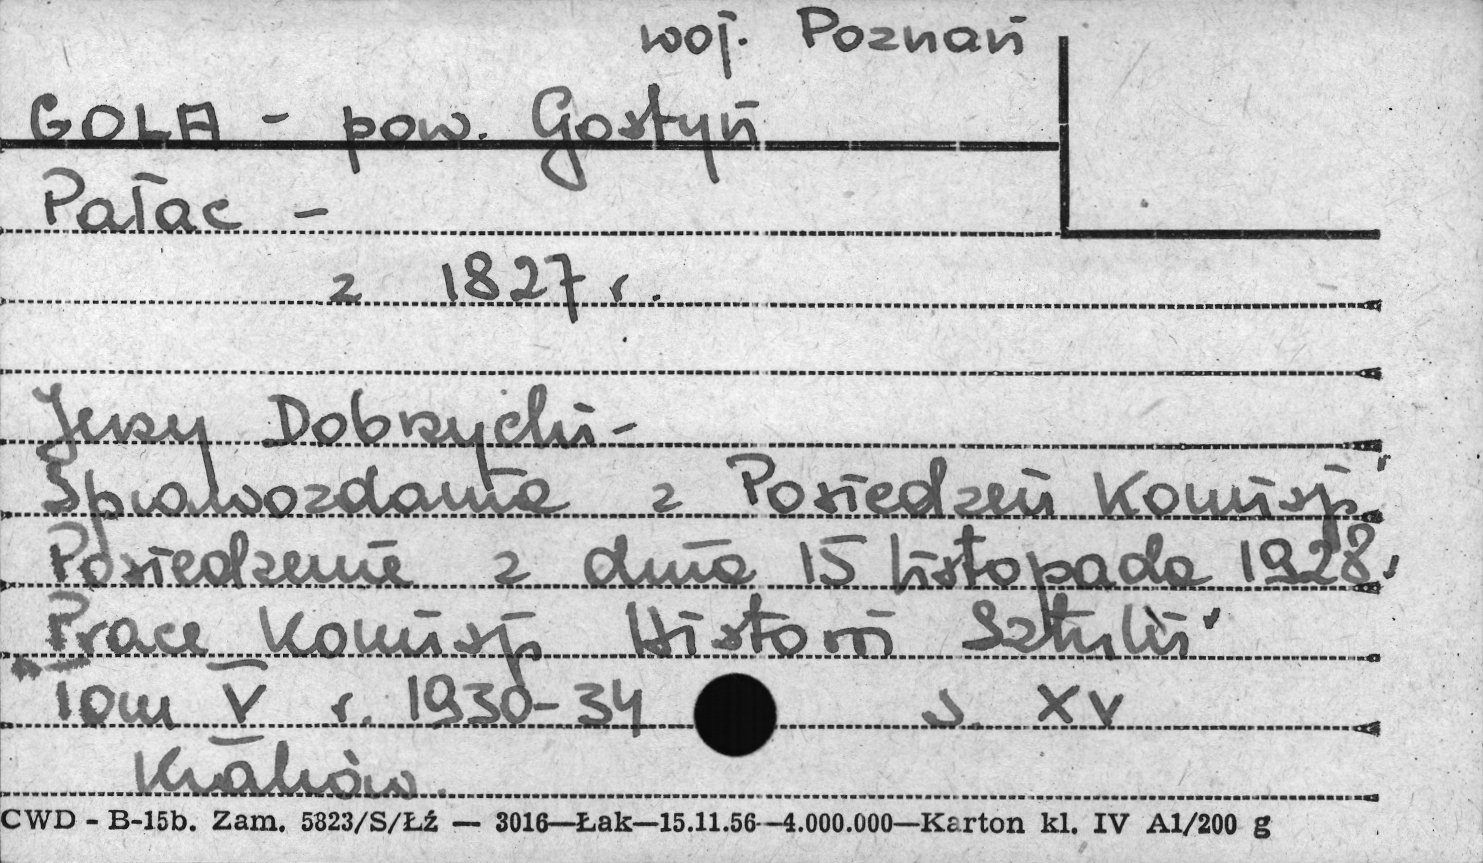 woj. Poznań
GOLA - pow. Gostyń
Pałac -
z 1827 r.
Jerzy Dobrzycki -
Sprawozdania z Posiedzeń Komisji
Posiedzenie z dnia 15 listopada 1928.
"Prace Komisji Historii Sztuki"
Tom V r. 1930-34 s. XV
Kraków.
CWD - B-15b. Zam. 5823/S/Łź — 3016—Łak—15.11.56—4.000.000—Karton kl. IV A1/200 g